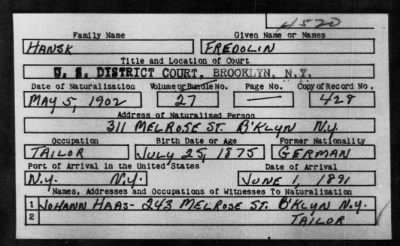 H520
Family Name Given Name or Names
HANSK FREDOLIN
Title and Location of Court
U. S. DISTRICT COURT, BROOKLYN, N.Y.
Date of Naturalization Volume or Bundle No. Page No. Copy of Record No.
MAY 5, 1902 27 — 428
Address of Naturalized Person
311 MELROSE ST. B'KLYN N.Y.
Occupation Birth Date or Age Former Nationality
TAILOR JULY 25, 1875 GERMAN
Port of Arrival in the United States Date of Arrival
N.Y. N.Y. JUNE 1, 1891
Names, Addresses and Occupations of Witnesses To Naturalization
1 JOHANN HAAS - 243 MELROSE ST. B'KLYN N.Y.
2 TAILOR